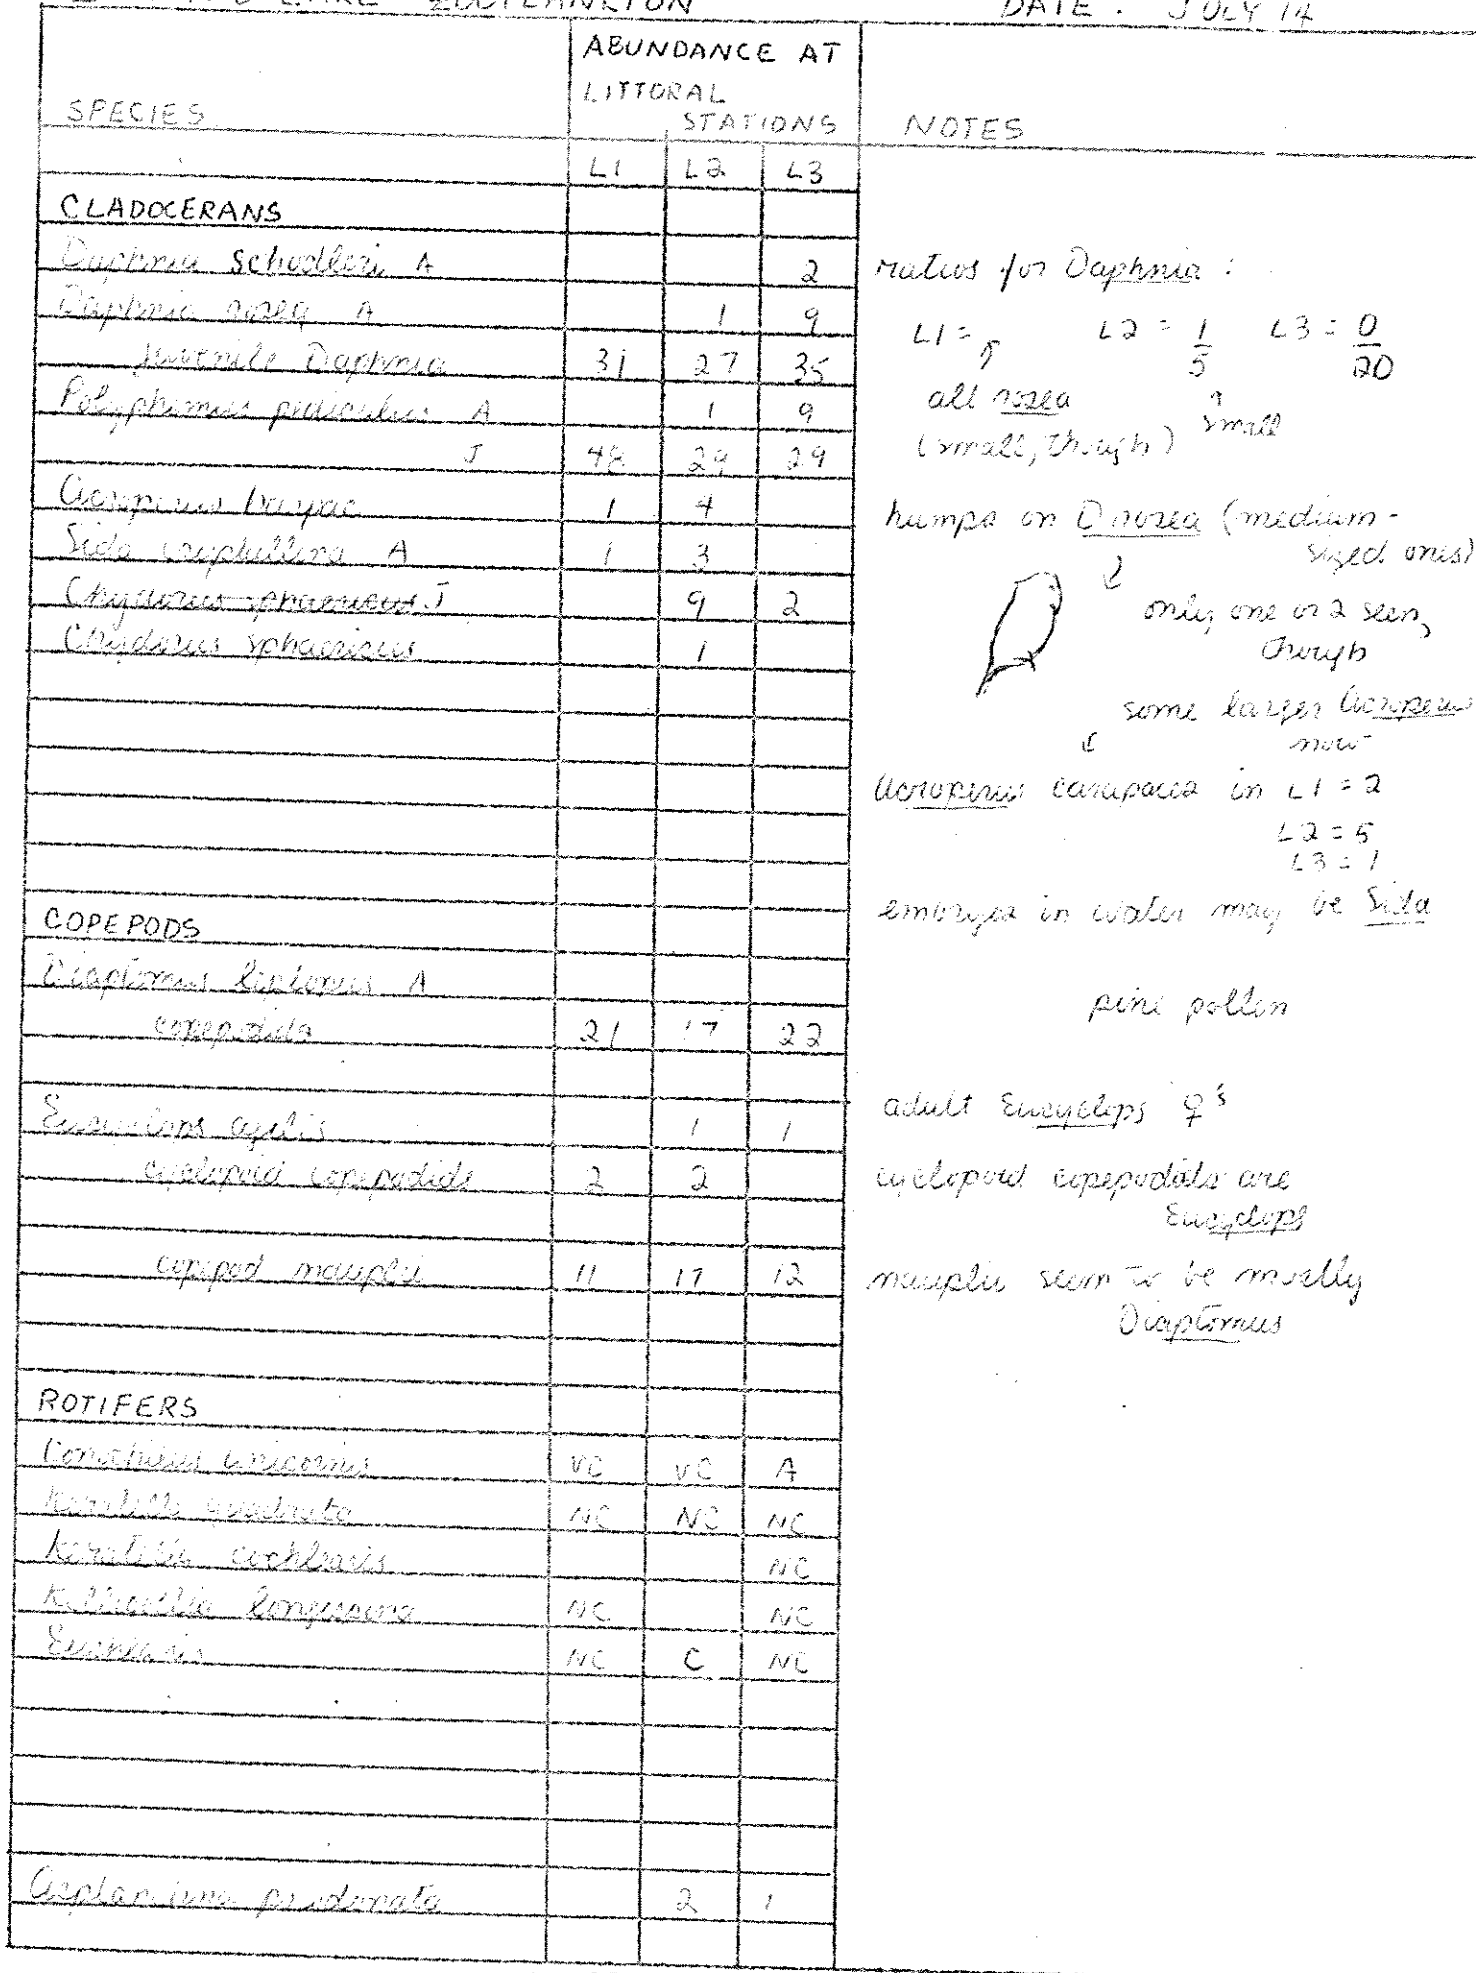 LAKE ZOOPLANKTON DATE: JULY 14
SPECIES ABUNDANCE AT LITTORAL STATIONS NOTES
L1 L2 L3
CLADOCERANS
Daphnia schodleri A 2
Daphnia rosea A 1 9
juvenile Daphnia 31 27 35
Polyphemus pediculus A 1 9
J 48 29 29
Acroperus harpae 1 4
Sida crystallina A 1 3
Chydorus sphaericus J 9 2
Chydorus sphaericus 1
COPEPODS
Diaptomus leptopus A
copepodids 21 17 22
Eucyclops agilis 1 1
cyclopoid copepodids 2 2
copepod nauplii 11 17 12
ROTIFERS
Conochilus unicornis VC VC A
Keratella quadrata NC NC NC
Keratella cochlearis NC
Kellicottia longispina NC NC
Euchlanis NC C NC
Asplanchna priodonta 2 1
ratios for Daphnia :
L1 = L2 = 1/5 L3 = 0/20
all rosea small
(small, though)
humps on D rosea (medium-
sized ones)
only one or 2 seen,
though
some larger Acroperus
now
Acroperus carapaces in L1 = 2
L2 = 5
L3 = 1
embryos in water may be Sida
pine pollen
adult Eucyclops ♀s
cyclopoid copepodids are
Eucyclops
nauplii seem to be mostly
Diaptomus